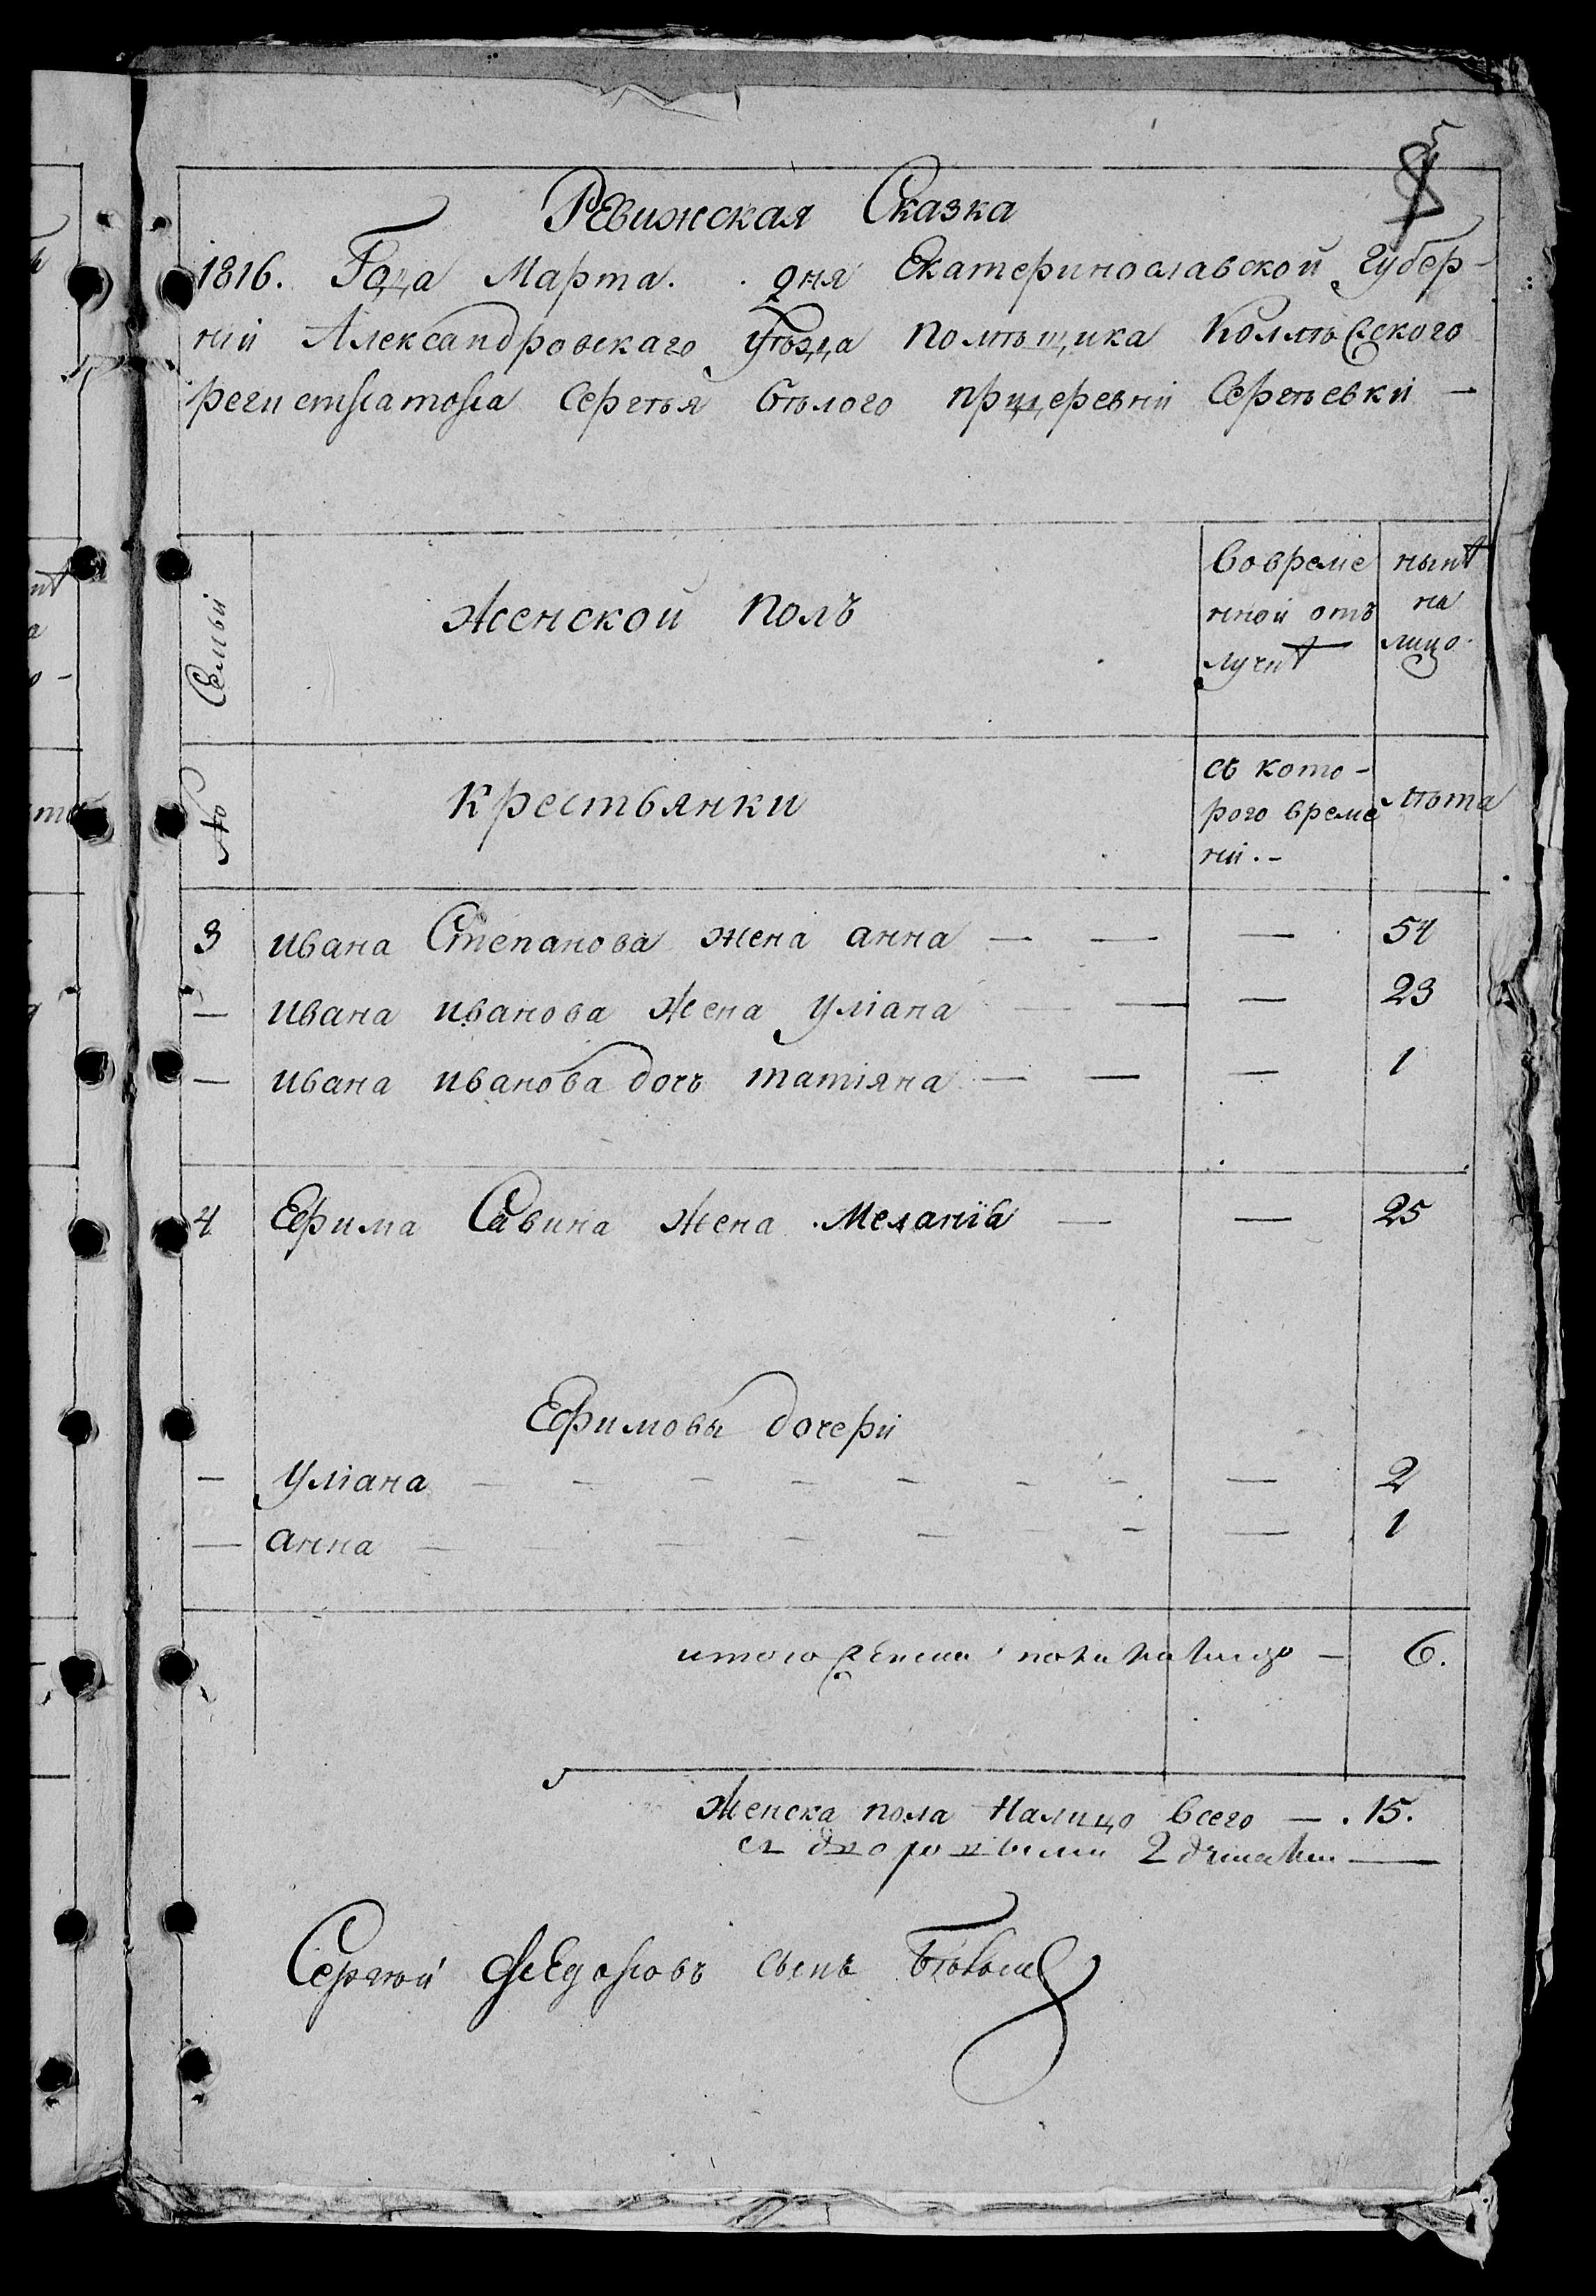 5
Ревижская Сказка
1816. Года Марта. . дня Екатеринославской Губер-
нїи Александровскаго Уѣзда помѣщика Коллѣжского
регистратора Сергѣя Бѣлого при деревнїи Сергѣевкїи —
Семьи
Женской полъ
Вовреме
нной отъ
лучкѣ
нынѣ
на
лицо.
№
Крестьянки
съ кото-
рого време
нїи.-
лѣта
3 ивана Степанова жена анна — — — 54
— ивана иванова жена Улїана — — — 23
— ивана иванова дочь татїяна — — — 1
4 Ефима Савина жена Меланїя — — 25
Ефимовы дочерїи
— Улїана — — — — — — — — 2
— анна — — — — — — — — 1
итого женска пола на лицо — 6.
Женска пола налицо всего — . 15.
съ дворовыми 2 душами —
Сергѣй Федоровъ сынъ Бѣлый